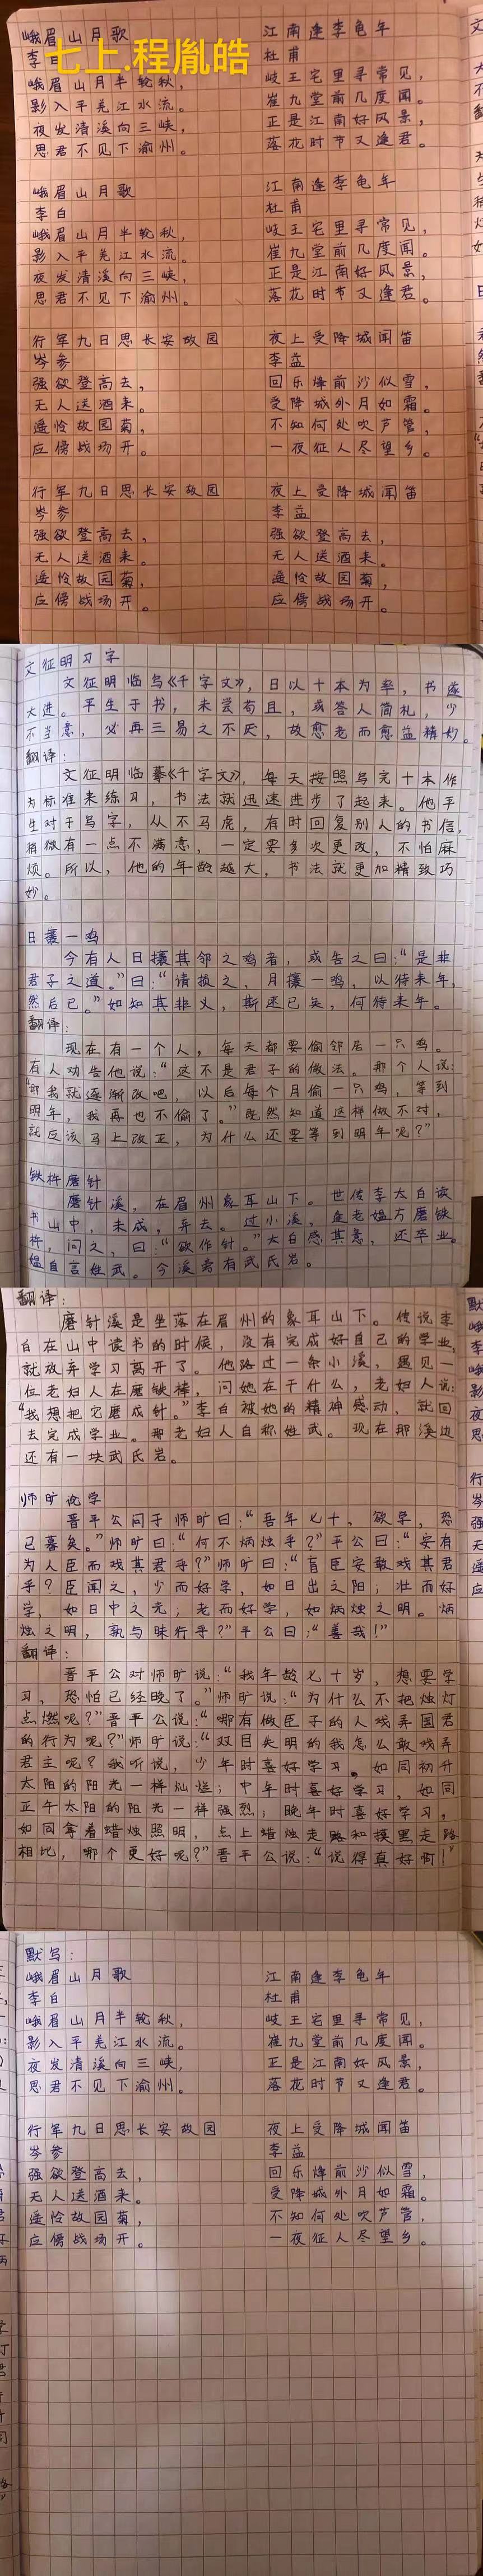 七上.程胤皓
峨眉山月歌
李白
峨眉山月半轮秋，
影入平羌江水流。
夜发清溪向三峡，
思君不见下渝州。
江南逢李龟年
杜甫
岐王宅里寻常见，
崔九堂前几度闻。
正是江南好风景，
落花时节又逢君。
峨眉山月歌
李白
峨眉山月半轮秋，
影入平羌江水流。
夜发清溪向三峡，
思君不见下渝州。
江南逢李龟年
杜甫
岐王宅里寻常见，
崔九堂前几度闻。
正是江南好风景，
落花时节又逢君。
行军九日思长安故园
岑参
强欲登高去，
无人送酒来。
遥怜故园菊，
应傍战场开。
夜上受降城闻笛
李益
回乐烽前沙似雪，
受降城外月如霜。
不知何处吹芦管，
一夜征人尽望乡。
行军九日思长安故园
岑参
强欲登高去，
无人送酒来。
遥怜故园菊，
应傍战场开。
夜上受降城闻笛
李益
强欲登高去，
无人送酒来。
遥怜故园菊，
应傍战场开。
文征明习字
文征明临写《千字文》，日以十本为率，书遂
大进。平生于书，未尝苟且，或答人简札，少
不当意，必再三易之不厌，故愈老而愈益精妙。
翻译：
文征明临摹《千字文》，每天按照写完十本作
为标准来练习，书法就迅速进步了起来。他平
生对于写字，从不马虎，有时回复别人的书信，
稍微有一点不满意，一定要多次更改，不怕麻
烦。所以，他的年龄越大，书法就更加精致巧
妙。
日攘一鸡
今有人日攘其邻之鸡者，或告之曰：“是非
君子之道。”曰：“请损之，月攘一鸡，以待来年，
然后已。”如知其非义，斯速已矣，何待来年。
翻译：
现在有一个人，每天都要偷邻居一只鸡。
有人劝告他说：“这不是君子的做法。那个人说：
“那我就逐渐改吧，以后每个月偷一只鸡，等到
明年，我再也不偷了。”既然知道这样做不对，
就应该马上改正，为什么还要等到明年呢？”
铁杵磨针
磨针溪，在眉州象耳山下。世传李太白读
书山中，未成，弃去。过小溪，逢老媪方磨铁
杵，问之，曰：“欲作针。”太白感其意，还卒业。
媪自言姓武。今溪旁有武氏岩。
翻译：
磨针溪是坐落在眉州的象耳山下。传说李
白在山中读书的时候，没有完成好自己的学业，
就放弃学习离开了。他路过一条小溪，遇见一
位老妇人在磨铁棒，问她在干什么，老妇人说：
“我想把它磨成针。”李白被她的精神感动，就回
去完成学业。那老妇人自称姓武。现在那溪边
还有一块武氏岩。
师旷论学
晋平公问于师旷曰：“吾年七十，欲学，恐
已暮矣。”师旷曰：“何不炳烛乎？”平公曰：“安有
为人臣而戏其君乎？”师旷曰：“盲臣安敢戏其君
乎？臣闻之，少而好学，如日出之阳；壮而好
学，如日中之光；老而好学，如炳烛之明。炳
烛之明，孰与昧行乎？”平公曰：“善哉！”
翻译：
晋平公对师旷说：“我年龄七十岁，想要学
习，恐怕已经晚了。”师旷说：“为什么不把烛灯
点燃呢？”晋平公说：“哪有做臣子的人戏弄国君
的行为呢？”师旷说：“双目失明的我怎么敢戏弄
君主呢？我听说，少年时喜好学习，如同初升
太阳的阳光一样灿烂；中年时喜好学习，如同
正午太阳的阳光一样强烈；晚年时喜好学习，
如同拿着蜡烛照明，点上蜡烛走路和摸黑走路
相比，哪个更好呢？”晋平公说：“说得真好啊！”
默写：
峨眉山月歌
李白
峨眉山月半轮秋，
影入平羌江水流。
夜发清溪向三峡，
思君不见下渝州。
江南逢李龟年
杜甫
岐王宅里寻常见，
崔九堂前几度闻。
正是江南好风景，
落花时节又逢君。
行军九日思长安故园
岑参
强欲登高去，
无人送酒来。
遥怜故园菊，
应傍战场开。
夜上受降城闻笛
李益
回乐烽前沙似雪，
受降城外月如霜。
不知何处吹芦管，
一夜征人尽望乡。